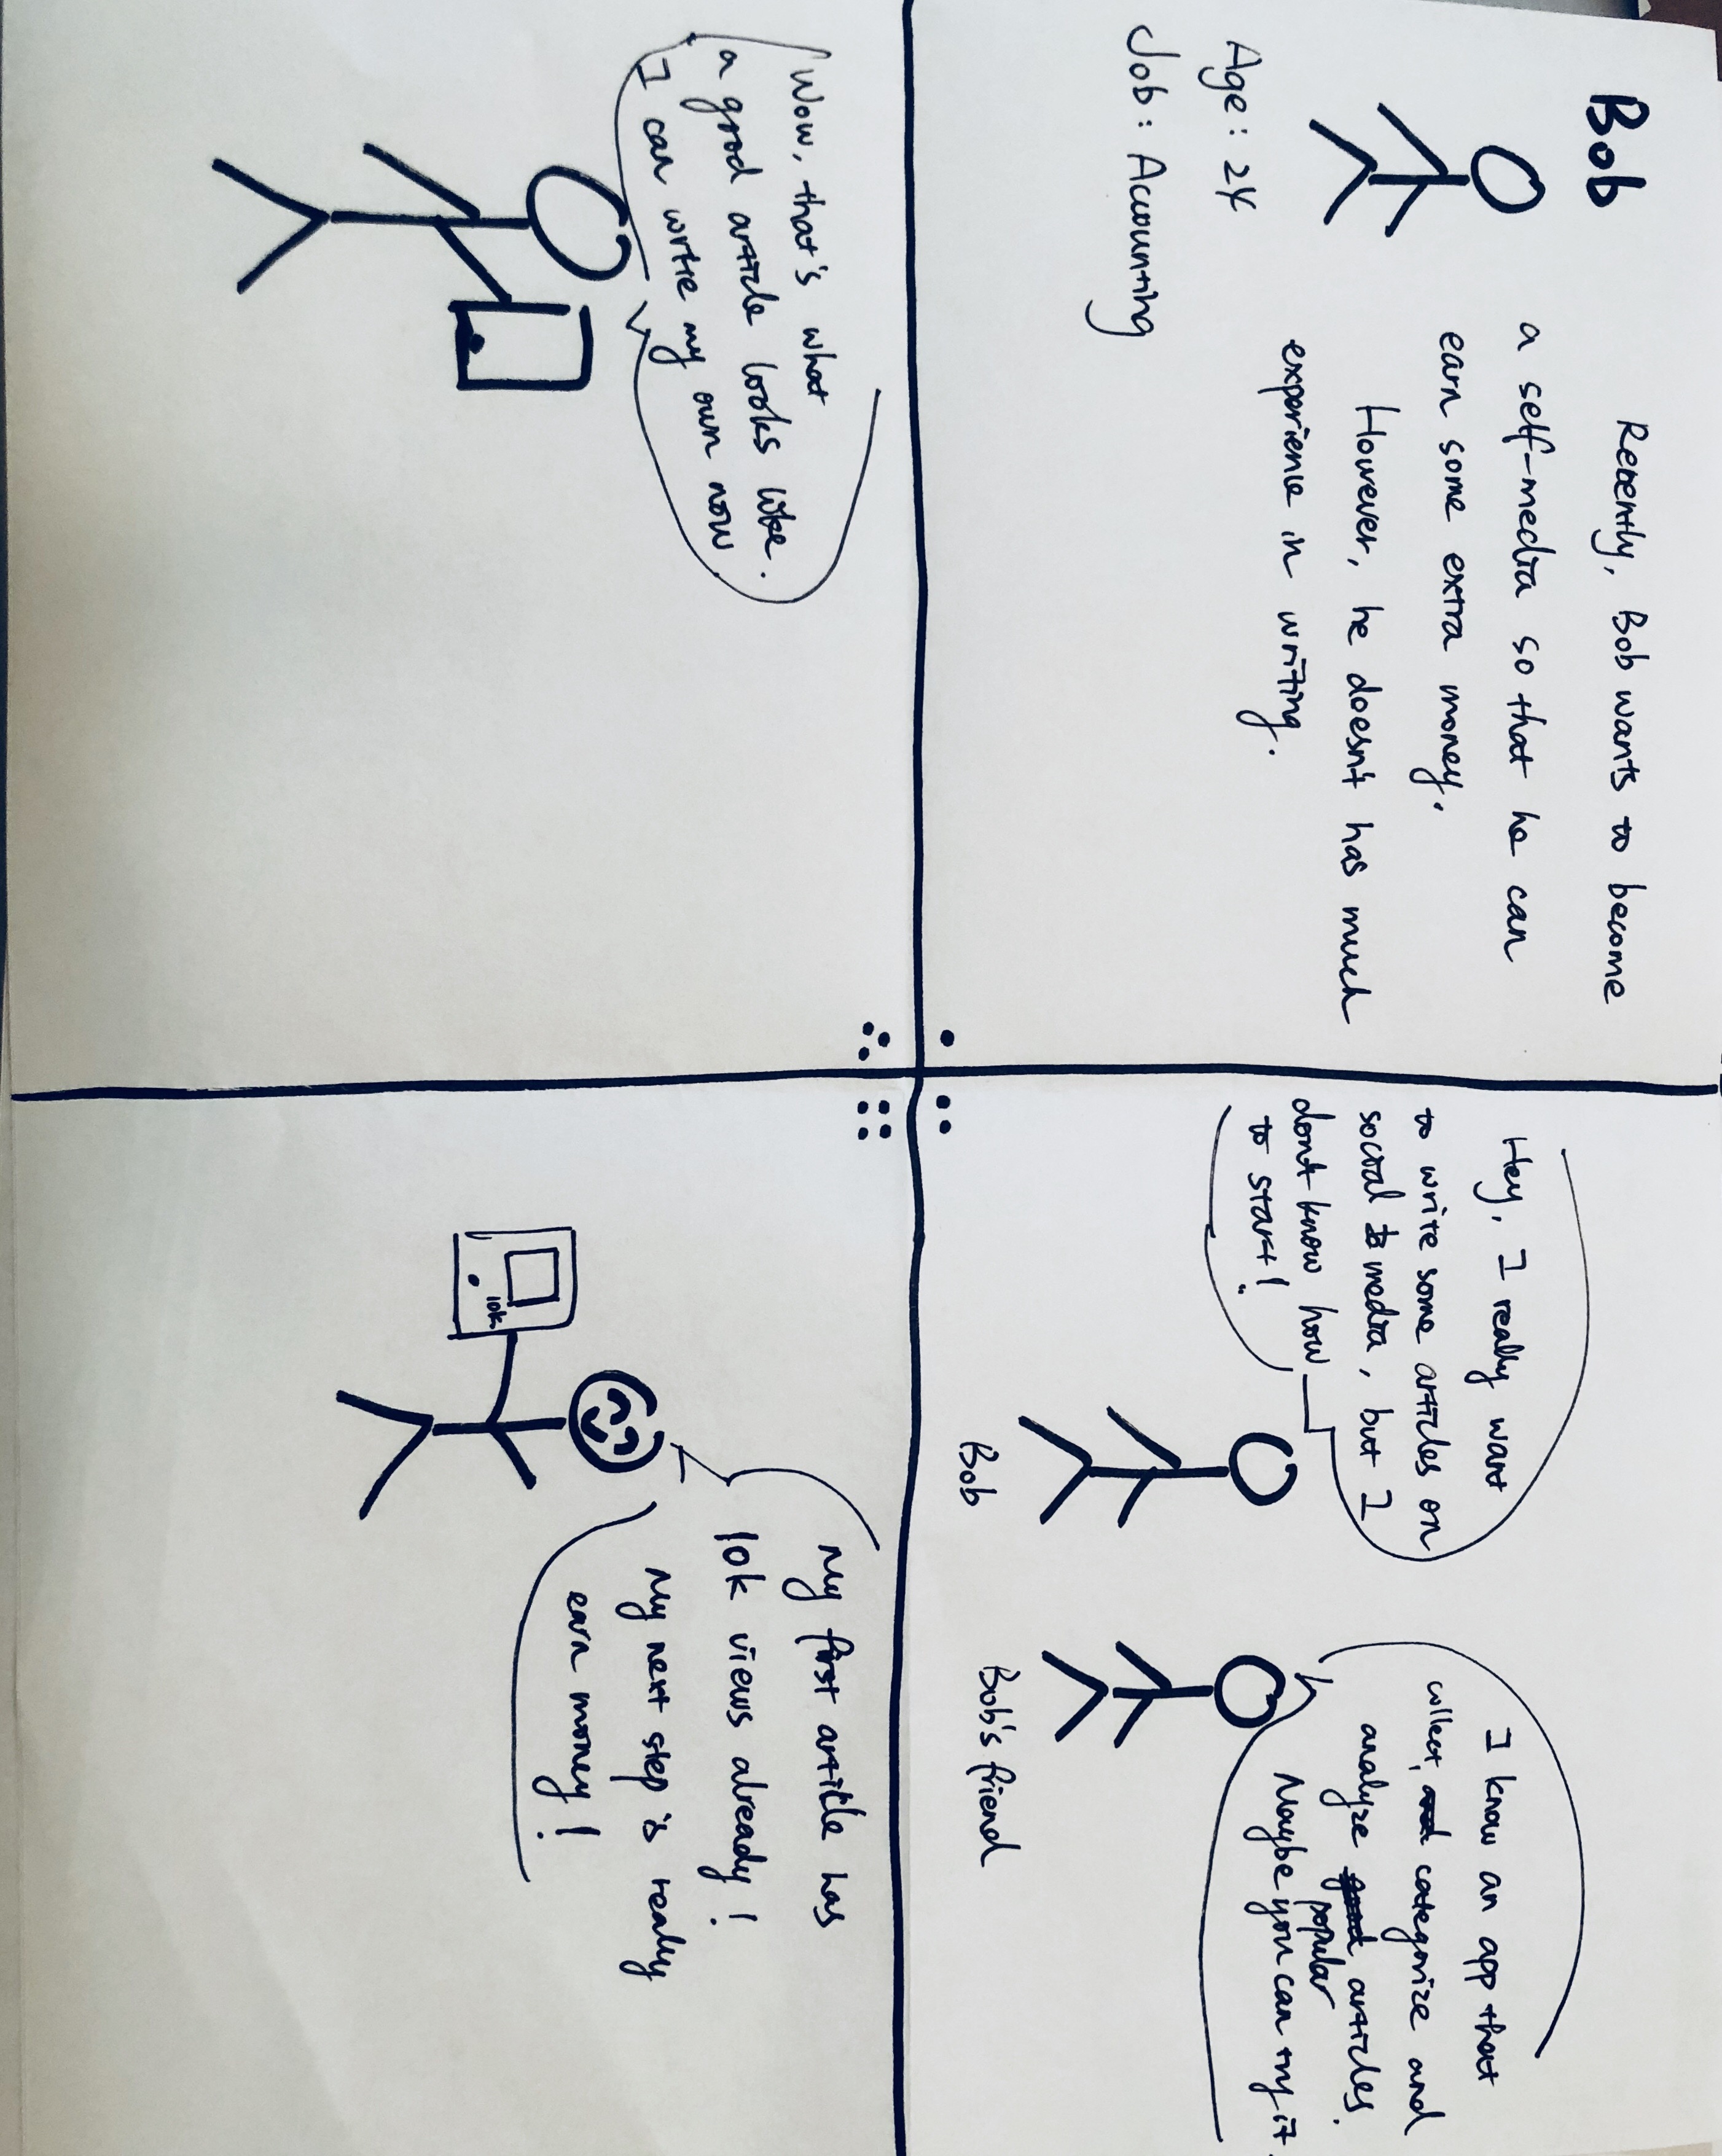 Bob
Recently, Bob wants to become
a self-media so that he can
earn some extra money.
However, he doesn't has much
experience in writing.
Age: 24
Job: Accounting
Hey, I really want
to write some articles on
social media, but I
don't know how
to start!
Bob
I know an app that
collect, and categorize and
analyze good articles.
popular
Maybe you can try it.
Bob's friend
Wow, that's what
a good article looks like.
I can wrtie my own now
My first article has
10k views already!
My next step is really
earn money!
10k